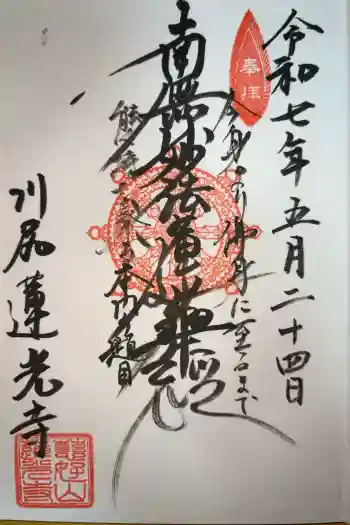 令和七年五月二十四日
奉拝
今身より仏身に至るまで
南無妙法蓮華経
能く持ち奉る本門の題目
川尻蓮光寺